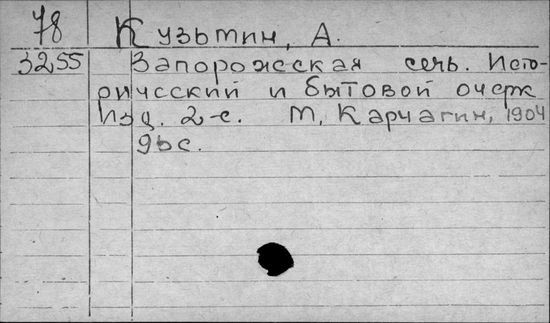 78 Кузьмин, А.
3255 Запорожская сечь. Исто-
рический и бытовой очерк
Изд. 2-е. М, Карчагин, 1904
96 с.